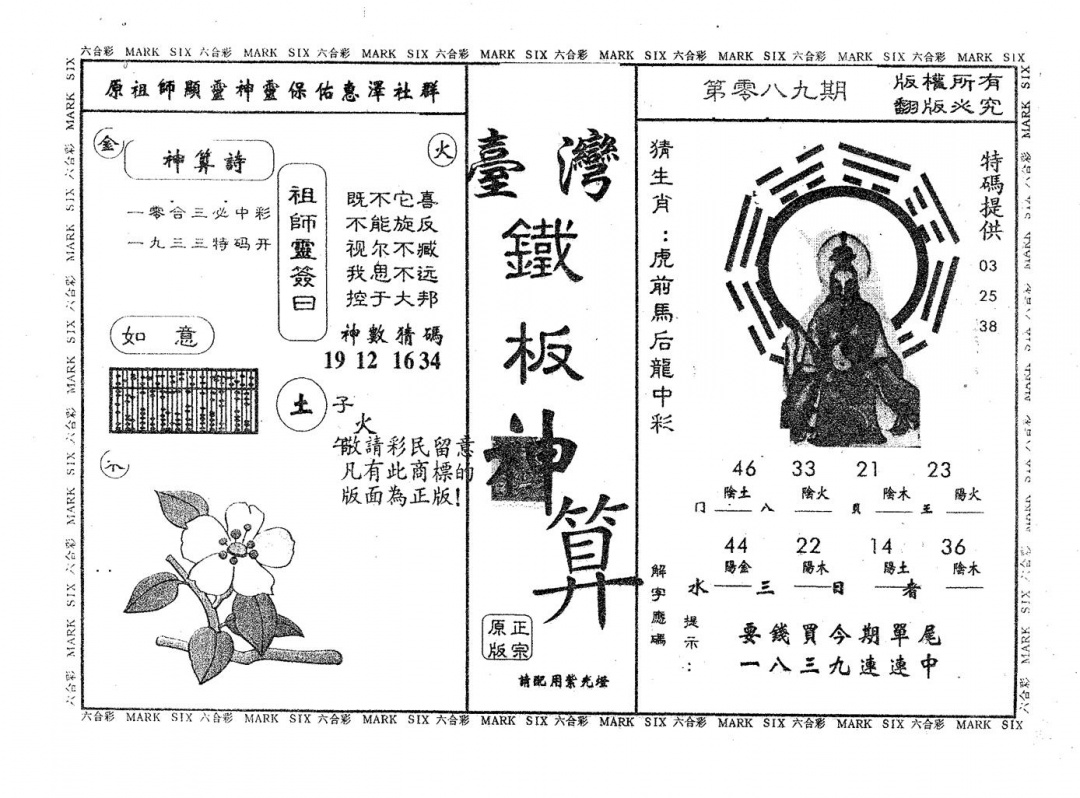 六合彩 MARK SIX 六合彩 MARK SIX 六合彩 MARK SIX 六合彩 MARK SIX 六合彩 MARK SIX 六合彩 MARK SIX 六合彩 MARK SIX 六合彩 MARK SIX
原祖師顯靈神靈保佑惠澤社群
金
火
神算詩
一零合三必中彩
一九三三特码开
祖師靈簽曰
既不它喜
不能旋反
视尔不臧
我思不远
控于大邦
神數猜碼
19 12 16 34
如意
土
子
火
敬請彩民留意
凡有此商標的
版面為正版!
臺灣
鐵
板
神
算
正宗
原版
請配用紫光燈
第零八九期
版權所有
翻版必究
猜生肖:虎前馬后龍中彩
特碼提供
03
25
38
46 33 21 23
陰土 陰火 陰木 陽火
门 八 貝 王
44 22 14 36
陽金 陽木 陽土 陰木
水 三 日 者
解字應碼
提示:
要錢買今期單尾
一八三九連連中
六合彩 MARK SIX 六合彩 MARK SIX 六合彩 MARK SIX 六合彩 MARK SIX 六合彩 MARK SIX 六合彩 MARK SIX 六合彩 MARK SIX 六合彩 MARK SIX